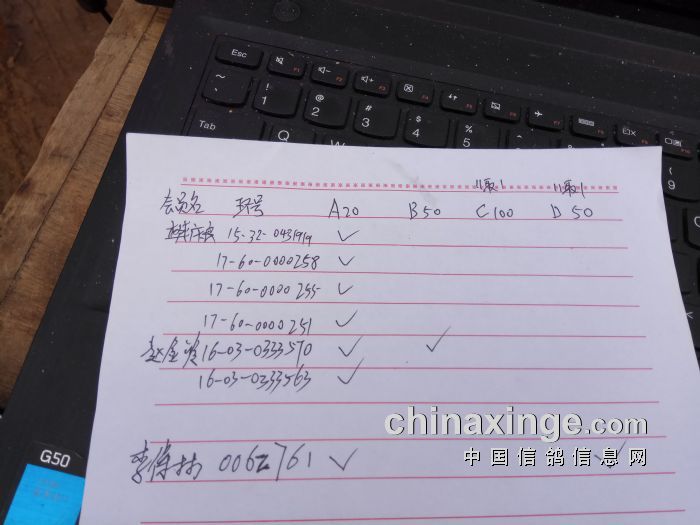 Esc F1 F2 F3 F4 F5 F6 F7
~ ! 1 @ 2 # 3 $ 4 % 5
Tab Q W
11取1 11取1
会员名 环号 A20 B50 C100 D 50
15-32-0431919 ✓
17-60-0000258 ✓
17-60-0000255 ✓
17-60-0000251 ✓
赵金 16-03-0333570 ✓ ✓
16-03-0333563 ✓
chinaxinge.com
中国信鸽信息网
李保林 0062761 ✓ ✓
G50